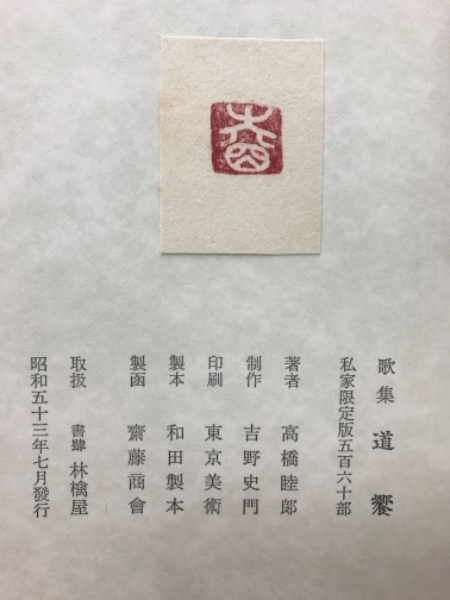 歌集 道饗
私家限定版五百六十部
著者 高橋睦郎
制作 吉野史門
印刷 東京美術
製本 和田製本
製函 齋藤商會
取扱 書肆 林檎屋
昭和五十三年七月發行